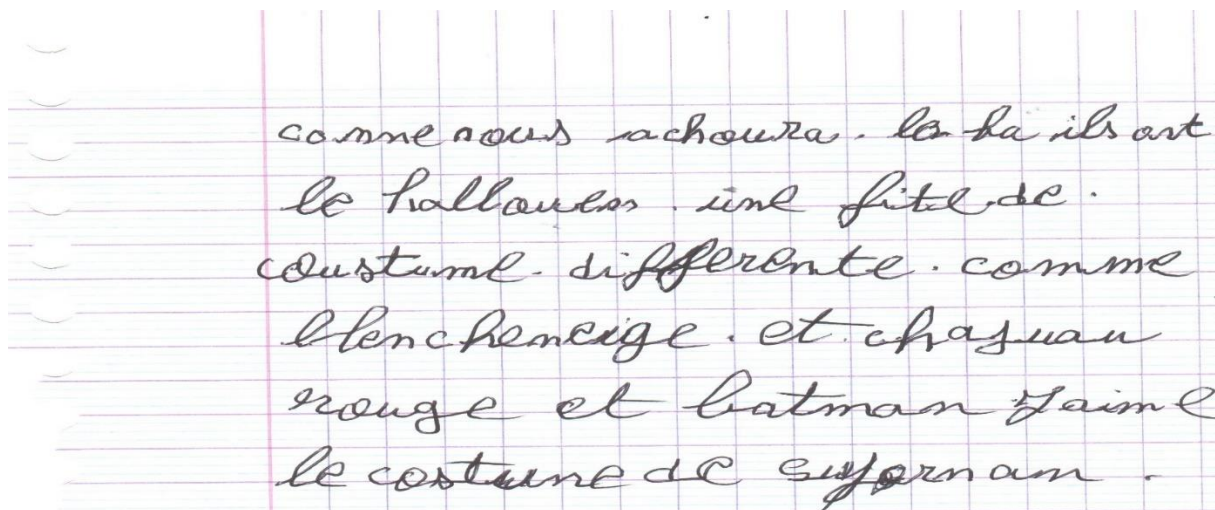 comme nous achoura. la ba ils ont
le hallowen. une fite de.
coustume. differente. comme
blencheneige. et
rouge et batman j'aime
le costume de